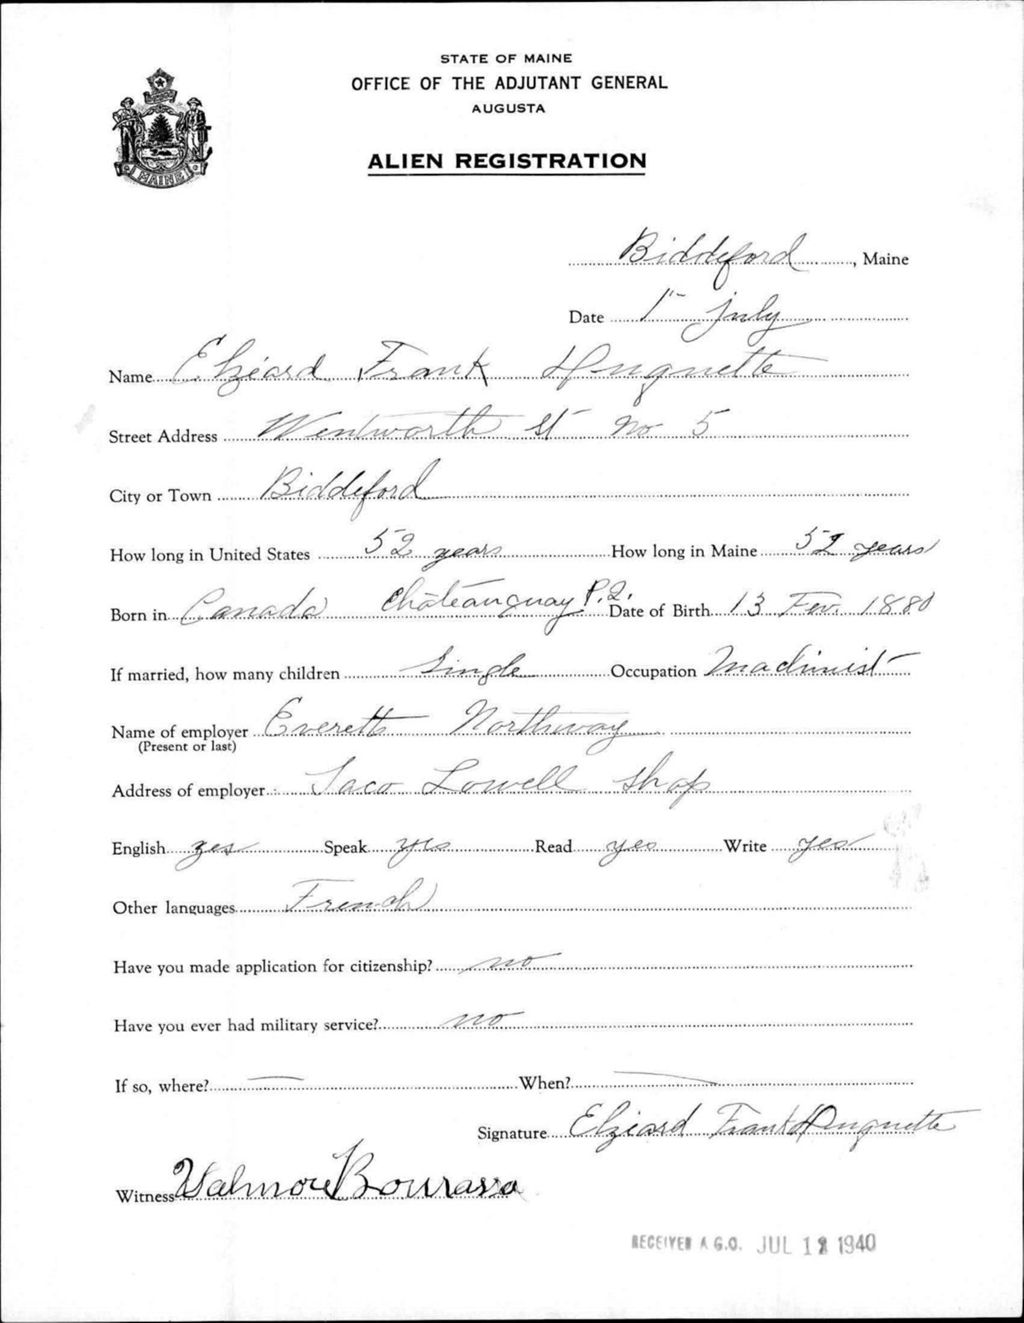 STATE OF MAINE
OFFICE OF THE ADJUTANT GENERAL
AUGUSTA
MAINE
ALIEN REGISTRATION
Biddeford, Maine
Date 1- July
Name Elzéard Frank Huguette
Street Address Wentworth St No 5
City or Town Biddeford
How long in United States 52 years How long in Maine 52 years
Born in Canada Châteauguay P.Q. Date of Birth 13 Fev. 1880
If married, how many children Single Occupation Machinist
Name of employer Everett Northway
(Present or last)
Address of employer Saco Lowell Shop
English yes Speak yes Read yes Write yes
Other languages French
Have you made application for citizenship? no
Have you ever had military service? no
If so, where? — When? —
Signature Elzéard Frank Huguette
Witness Valmore Bourassa
RECEIVED A.G.O. JUL 12 1940